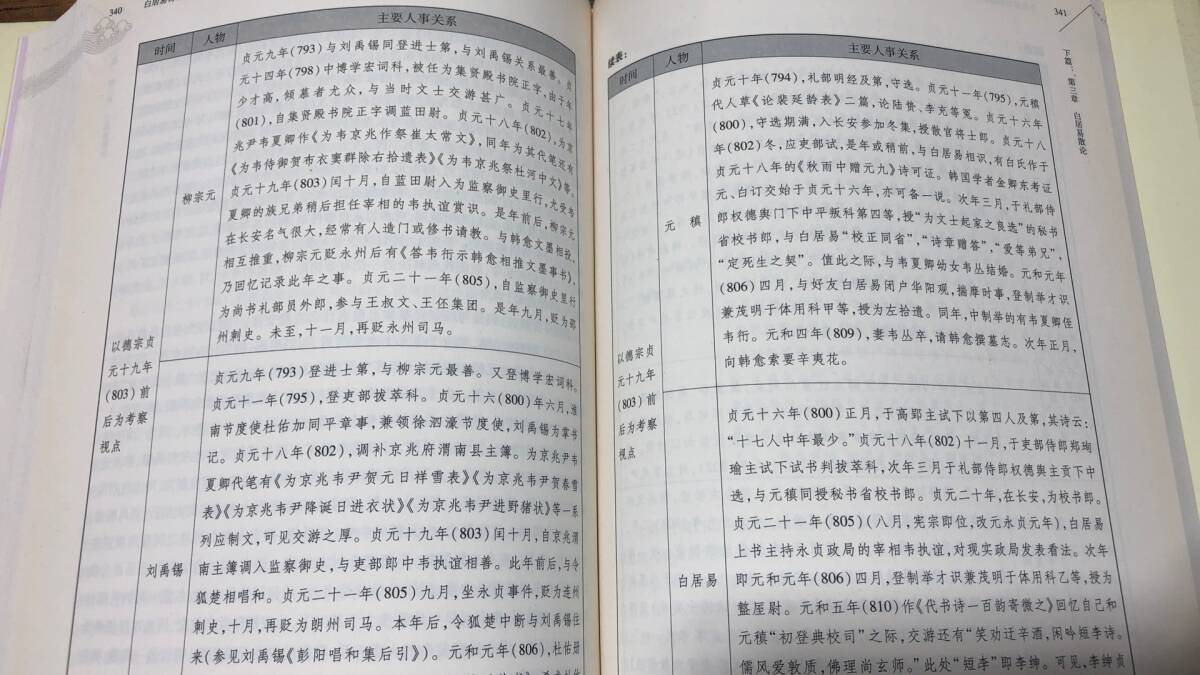 340
白居易
时间
人物
主要人事关系
以德宗贞
元十九年
(803)前
后为考察
视点
柳宗元
贞元九年(793)与刘禹锡同登进士第,与刘禹锡关系最善。贞
元十四年(798)中博学宏词科,被任为集贤殿书院正字,由于年
少才高,倾慕者尤众,与当时文士交游甚广。贞元十七年
(801),自集贤殿书院正字调蓝田尉。贞元十八年(802),为京
兆尹韦夏卿作《为韦京兆作祭崔太常文》,同年为其代笔还有
《为韦侍御贺布衣窦群除右拾遗表》《为韦京兆祭杜河中文》等。
贞元十九年(803)闰十月,自蓝田尉入为监察御史里行,尤受韦
夏卿的族兄弟稍后担任宰相的韦执谊赏识。是年前后,柳宗元
在长安名气很大,经常有人造门或修书请教。与韩愈文墨相投,
相互推重,柳宗元贬永州后有《答韦珩示韩愈相推文墨事书》,
乃回忆记录此年之事。贞元二十一年(805),自监察御史里行
为尚书礼部员外郎,参与王叔文、王伾集团。是年九月,贬为邵
州刺史。未至,十一月,再贬永州司马。
刘禹锡
贞元九年(793)登进士第,与柳宗元最善。又登博学宏词科。
贞元十一年(795),登吏部拔萃科。贞元十六(800)年六月,淮
南节度使杜佑加同平章事,兼领徐泗濠节度使,刘禹锡为掌书
记。贞元十八年(802),调补京兆府渭南县主簿。为京兆尹韦
夏卿代笔有《为京兆韦尹贺元日祥雪表》《为京兆韦尹贺春雪
表》《为京兆韦尹降诞日进衣状》《为京兆韦尹进野猪状》等一系
列应制文,可见交游之厚。贞元十九年(803)闰十月,自京兆渭
南主簿调入监察御史,与吏部郎中韦执谊相善。此年前后,与令
狐楚相唱和。贞元二十一年(805)九月,坐永贞事件,贬为连州
刺史,十月,再贬为朗州司马。本年后,令狐楚中断与刘禹锡往
来(参见刘禹锡《彭阳唱和集后引》)。元和元年(806),杜佑册
341
下篇:第三章 白居易散论
续表:
时间
人物
主要人事关系
以德宗贞
元十九年
(803)前
后为考察
视点
元 稹
贞元十年(794),礼部明经及第,守选。贞元十一年(795),元稹
代人草《论裴延龄表》二篇,论陆贽、李充等冤。贞元十六年
(800),守选期满,入长安参加冬集,授散官将士郎。贞元十八
年(802)冬,应吏部试,是年或稍前,与白居易相识,有白氏作于
贞元十八年的《秋雨中赠元九》诗可证。韩国学者金卿东考证
元、白订交始于贞元十六年,亦可备一说。次年三月,于礼部侍
郎权德舆门下中平叛科第四等,授“为文士起家之良选”的秘书
省校书郎,与白居易“校正同省”,“诗章赠答”,“爱等弟兄”,
“定死生之契”。值此之际,与韦夏卿幼女韦丛结婚。元和元年
(806)四月,与好友白居易闭户华阳观,揣摩时事,登制举才识
兼茂明于体用科甲等,授为左拾遗。同年,中制举的有韦夏卿侄
韦珩。元和四年(809),妻韦丛卒,请韩愈撰墓志。次年正月,
向韩愈索要辛夷花。
白居易
贞元十六年(800)正月,于高郢主试下以第四人及第,其诗云:
“十七人中年最少。”贞元十八年(802)十一月,于吏部侍郎郑珣
瑜主试下试书判拔萃科,次年三月于礼部侍郎权德舆主贡下中
选,与元稹同授秘书省校书郎。贞元二十年,在长安,为校书郎。
贞元二十一年(805)(八月,宪宗即位,改元永贞元年),白居易
上书主持永贞政局的宰相韦执谊,对现实政局发表看法。次年
即元和元年(806)四月,登制举才识兼茂明于体用科乙等,授为
盩厔尉。元和五年(810)作《代书诗一百韵寄微之》回忆自己和
元稹“初登典校司”之际,交游还有“笑劝迂辛酒,闲吟短李诗。
儒风爱敦质,佛理尚玄师。”此处“短李”即李绅。可见,李绅贞